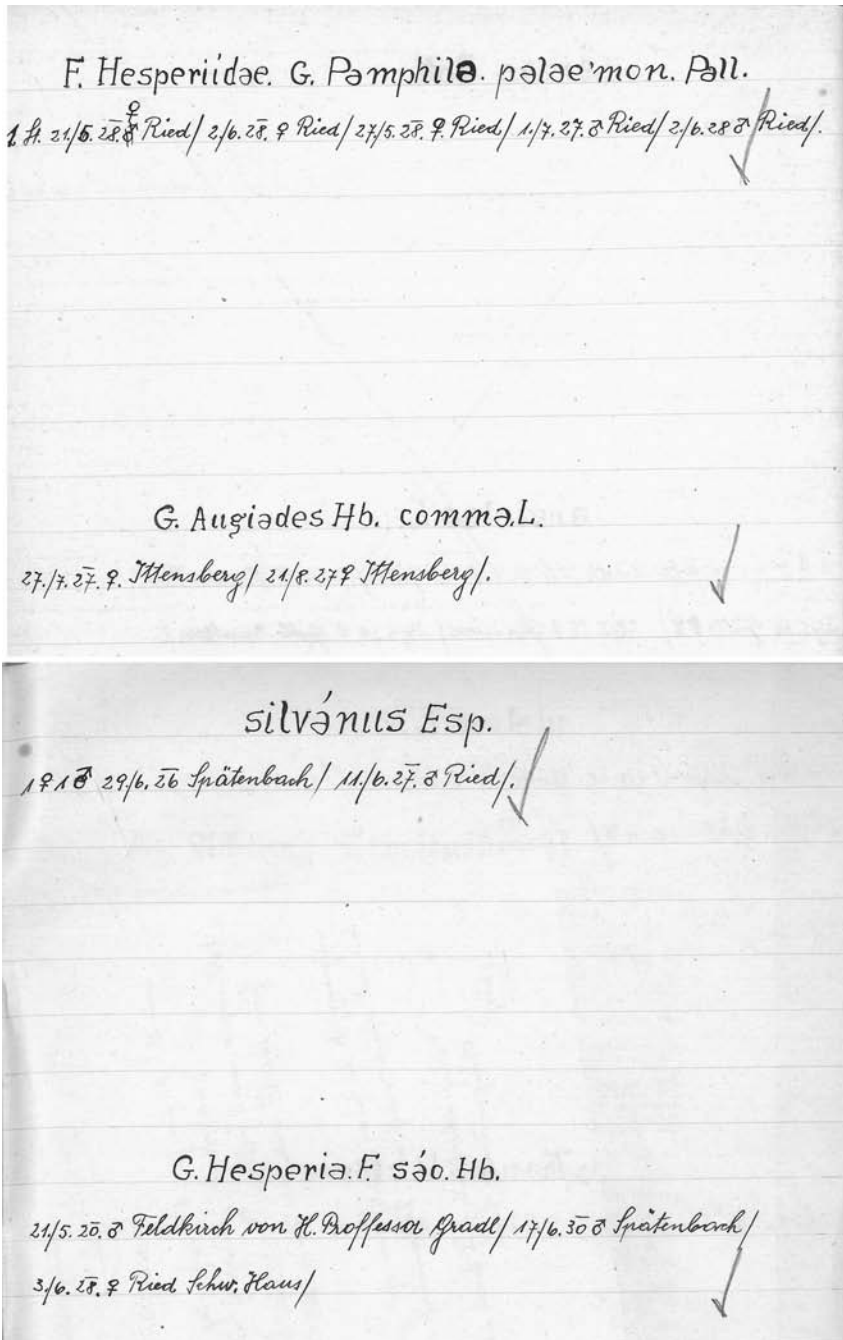 F. Hesperiídae. G. Pamphila. palae'mon. Pall.
1 St. 21./5. 28. ♀ Ried/ 2./6. 28. ♀ Ried/ 27./5. 28. ♀. Ried/ 1./7. 27. ♂ Ried/ 2./6. 28 ♂ Ried/.
G. Augiades Hb. comma. L.
27./7. 27. ♀. Ittensberg/ 21./8. 27 ♀ Ittensberg/.
silvánus Esp.
1 ♀ 1 ♂ 29./6. 26 Spätenbach/ 11./6. 27. ♂ Ried/.
G. Hesperia. F. sáo. Hb.
21./5. 20. ♂ Feldkirch von H. Proffessor Gradl/ 17./6. 30 ♂ Spätenbach/
3./6. 28. ♀ Ried Schw. Haus/